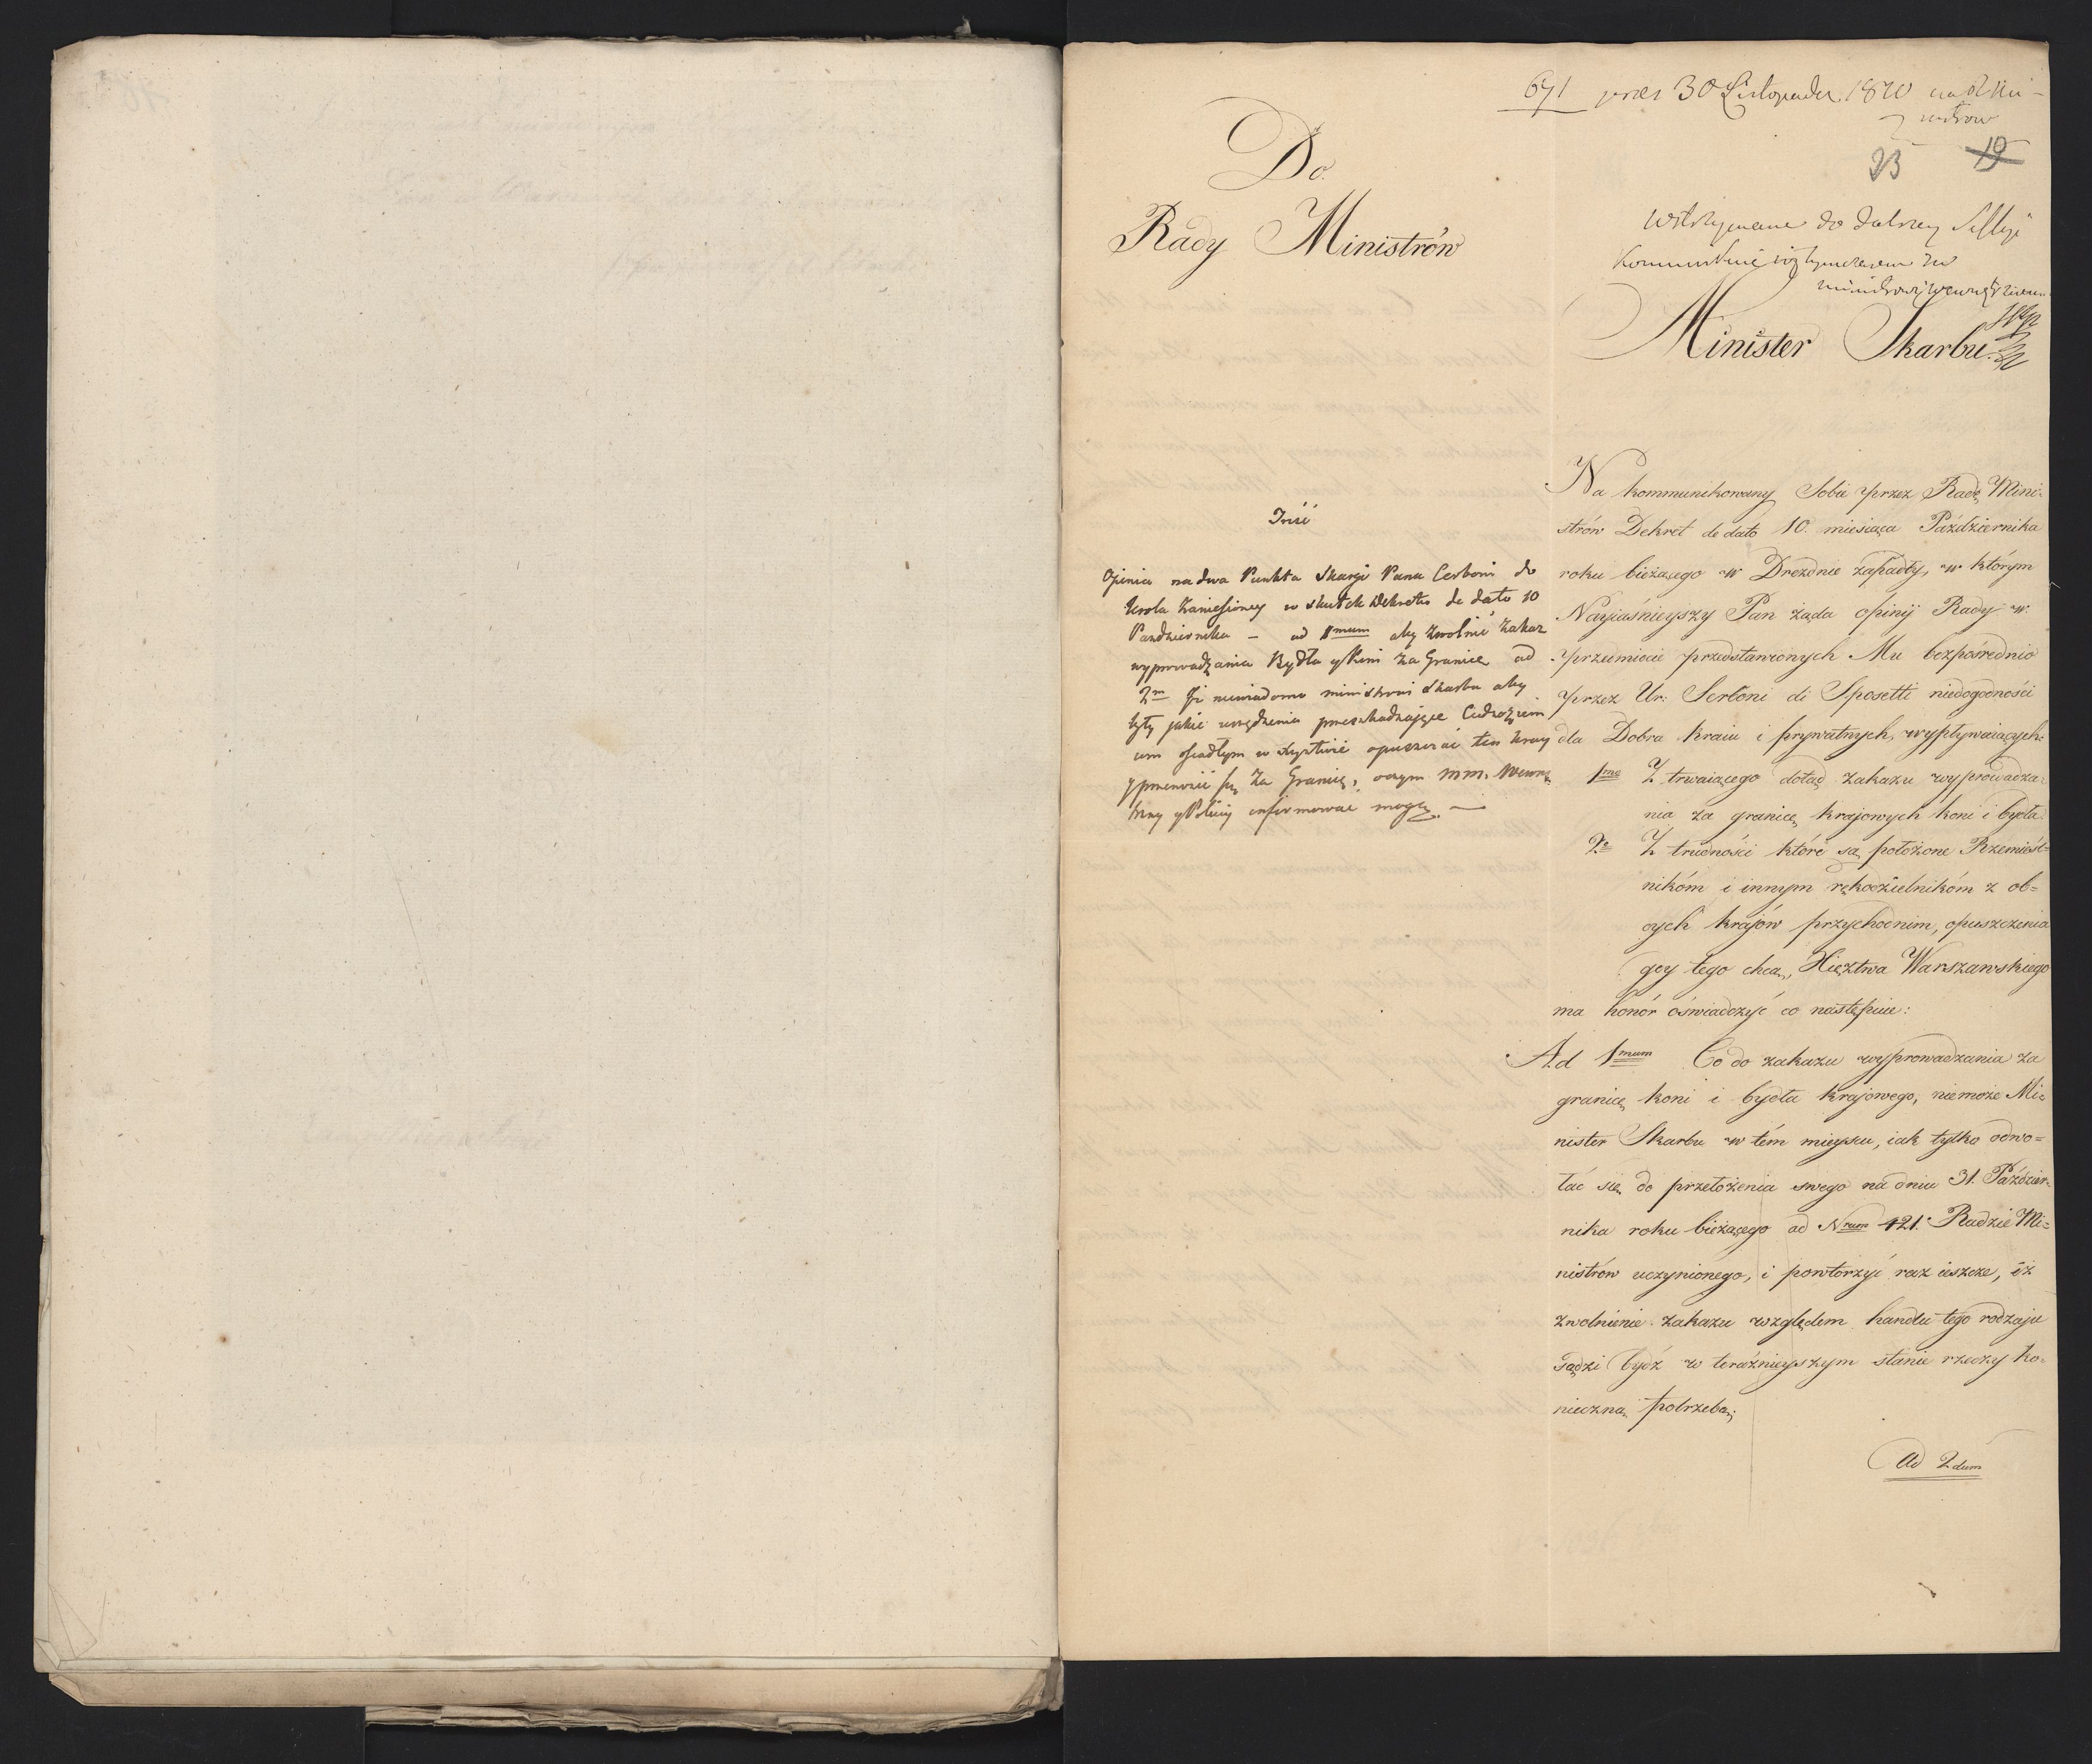 691 pres 30 Listopada 1810 na R Mi-
nistrow
23 19
Do
Rady Ministrów
Wstrzymane do dalszey Sessyi
kommunikuie się tymczasem
Ministrowi Wewnętrznemu
Minister Skarbu.
Treść
Opinia na dwa Punkta Skargi Pana Cerboni do
Krola zaniesioney w skutek Dekretu de dato 10
Pazdziernika – ad 1mum aby zwolnić zakaz
wyprowadzania Bydła y Koni za Granicę ad
2m Iż niewiadomo ministrowi skarbu aby
były jakie urządzenia przeszkadzające Cudzoziem
com osiadłym w Xięstwie opuszczać ten kray
y przenosić się za Granicę, oczym MM. Wewnę
trzny y Policyi informować mogą. —
Na kommunikowany Sobie przez Radę Mini-
strów Dekret de dato 10. miesiąca Października
roku bieżącego w Dreznie zapadły, w którym
Nayiaśnieyszy Pan żąda opinij Rady w
przedmiocie przedstawionych Mu bezpośrednio
przez Ur: Serboni di Sposetti niedogodności
dla Dobra kraiu i prywatnych, wypływaiących:
1mo Z trwaiącego dotąd zakazu wyprowadza-
nia za granicę krajowych koni i bydła.
2o Z trudności które są położone Rzemieśl-
nikóm i innym rękodzielnikóm z ob-
cych krajów przychodnim, opuszczenia
gdy tego chcą, Xięztwa Warszawskiego
ma honór oświadczyć co następuie:
Ad 1mum Co do zakazu wyprowadzania za
granicę koni i bydła krajowego, niemoże Mi-
nister Skarbu w tém mieyscu, iak tylko odwo-
łać się do przełożenia swego na dniu 31. Paździer-
nika roku bieżącego ad Nrum 421. Radzie Mi-
nistrów uczynionego, i powtorzyć raz ieszcze, iż
zwolnienie zakazu względem handlu tego rodzaju
sądzi bydź w teraźnieyszym stanie rzeczy ko-
nieczną potrzebą;
Ad 2dum